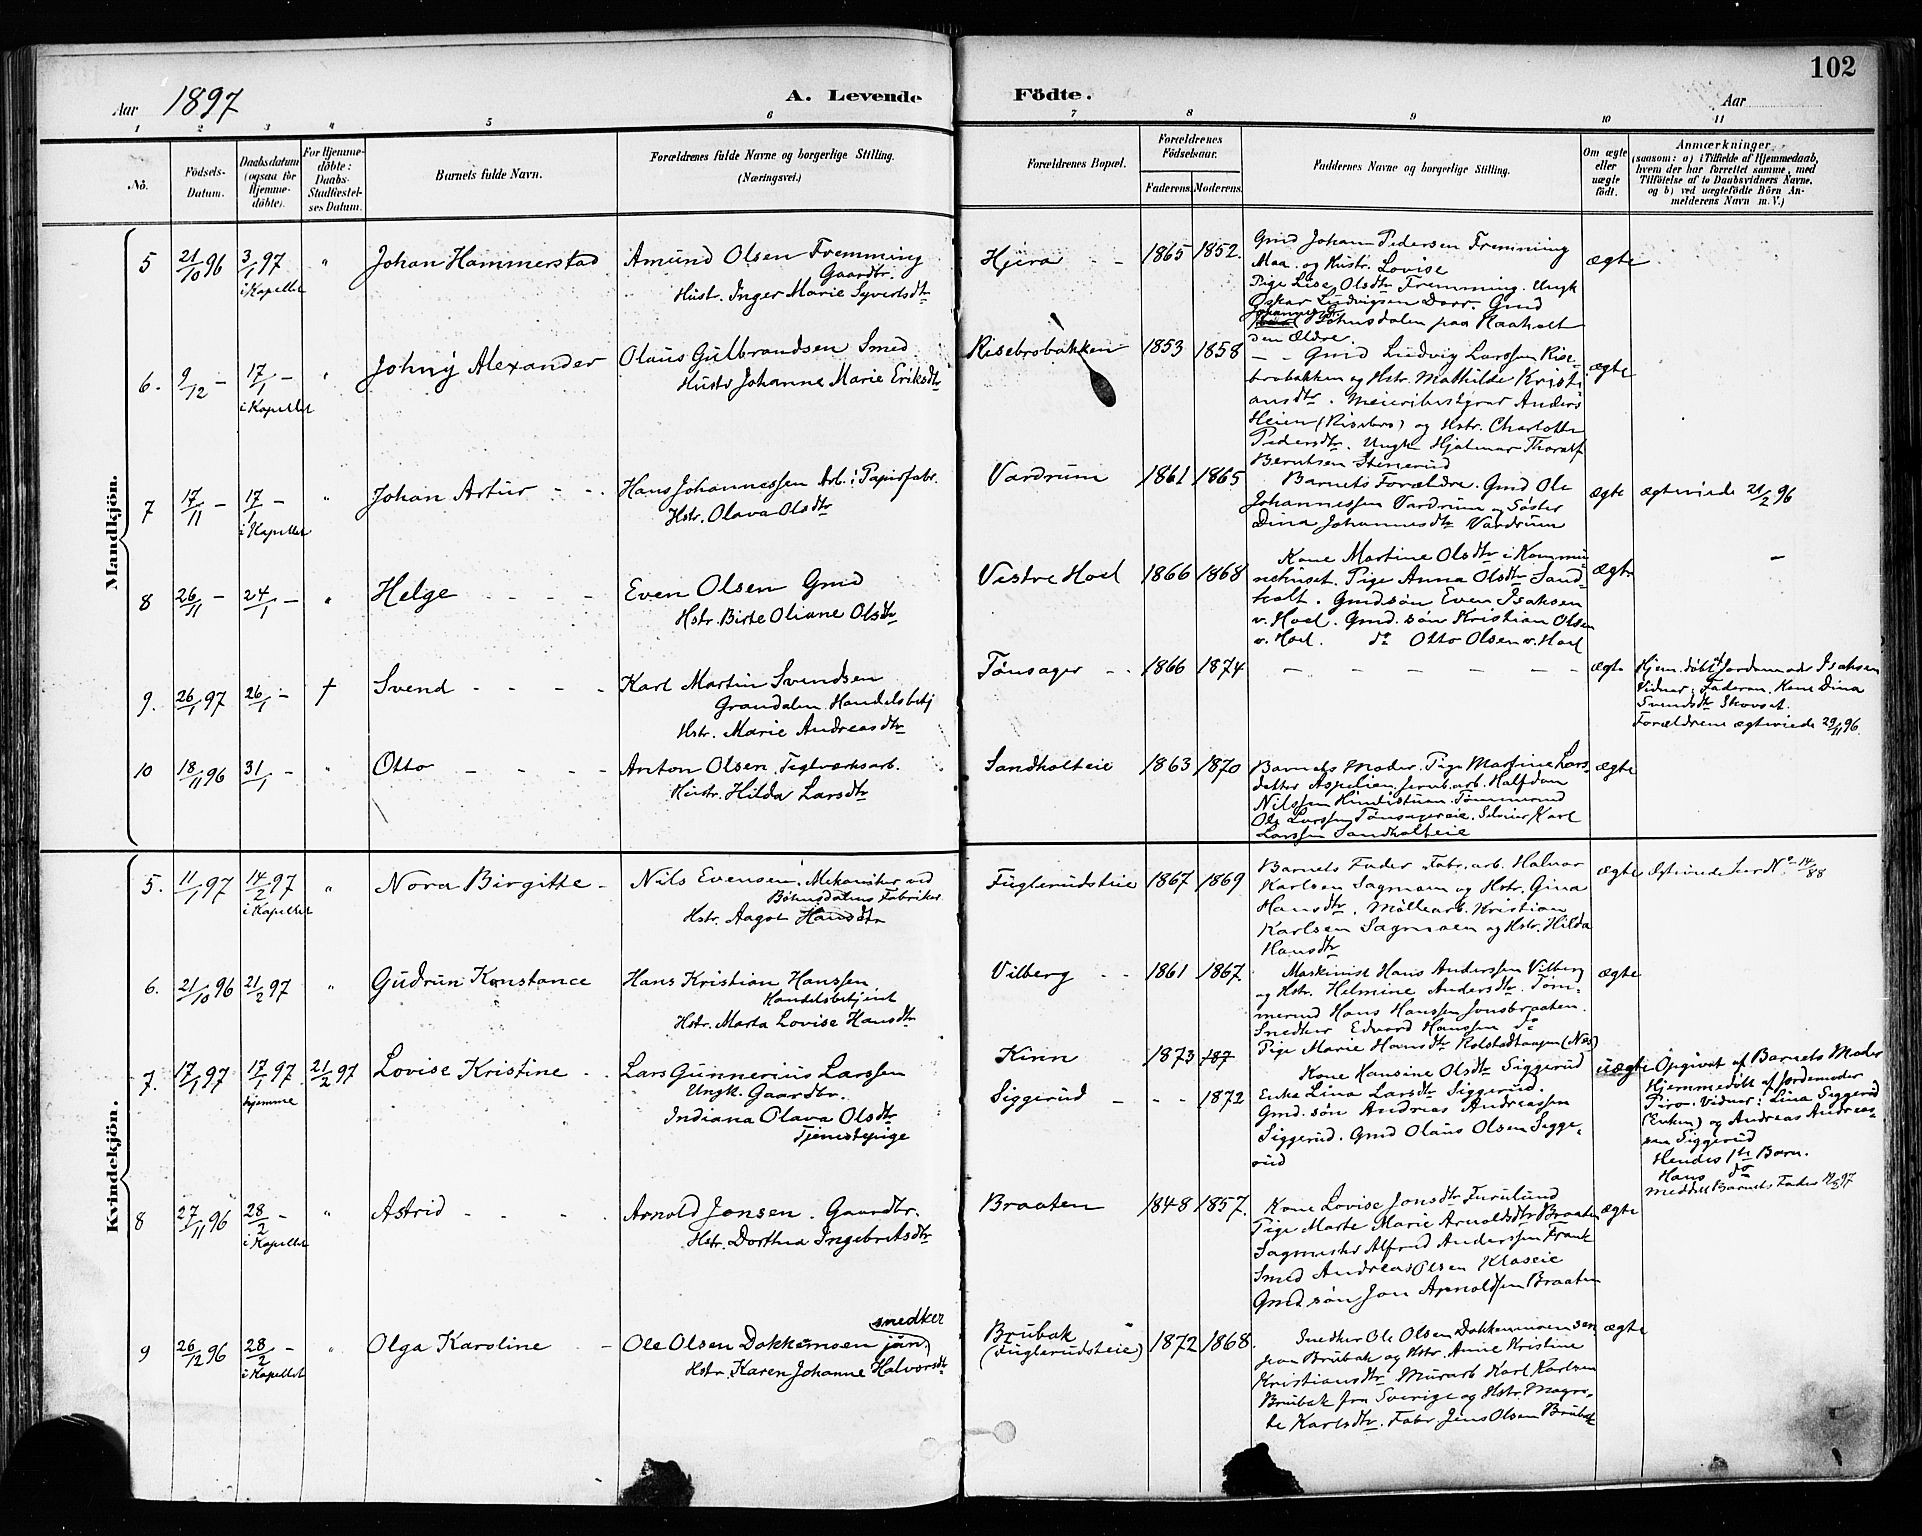 102
Aar 1897
A. Levende Födte.
Aar
1 2 3 4 5 6 7 8 9 10 11
No.
Födsels-Datum.
Daabsdatum (ogsaa for Hjemme-döbte).
For Hjemme-döbte: Daabs-Stadfæstelses Datum.
Barnets fulde Navn.
Forældrenes fulde Navne og borgerlige Stilling.
(Næringsvei.)
Forældrenes Bopæl.
Forældrenes Födselsaar.
Faderens. Moderens.
Faddernes Navne og borgerlige Stilling.
Om ægte eller uægte födt.
Anmærkninger
(saasom: a) i Tilfælde af Hjemmedaab,
hvem der har forrettet samme, med
Tilföielse af to Daabsvidners Navne,
og b) ved uægtefödte Börn An-
melderens Navn m. V.)
Mandkjön.
5 21/10 96 3/1 97 i Kapellet " Johan Hammerstad
Amund Olsen Fremming
Gaardbr.
Hust. Inger Marie Syverdsdtr
Hjera 1865 1852
Gmd Johan Pedersen Fremming
Maa. og Hustr. Lovise
Pige Lise Olsdtr Fremming. Ungk
Oskar Ludvigsen Dorr. Gmd
Johannes Bøhnsdalen paa Raaholt
den Ældre.
ægte
6. 9/12 - 17/1 - i Kapellet " Johny Alexander
Olaus Gulbrandsen Smed
Hustr Johanne Marie Eriksdtr
Risebrobakken 1853 1858
- - Gmd Ludvig Larssen Rise-
brobakken og Hstr. Mathilde Kristi-
ansdtr. Meieribestyrer Anders
Heien (Risebro) og Hstr. Charlotte
Pedersdtr. Ungk Hjalmar Thoralf
Berntsen Stenerud
ægte
7 17/11 - 17/1 - i Kapellet " Johan Artur - -
Hans Johannessen Arb. i Papirfabr.
Hstr. Olava Olsdtr
Vardrum 1861 1865
Barnets Forældre. Gmd Ole
Johannessen Vardrum og Søster
Dina Johannesdtr Vardrum
ægte ægteviede 21/2 96
8 26/11 - 24/1 - " Helge - - - -
Even Olsen Gmd
Hstr. Birte Oliane Olsdtr
Vestre Hoel 1866 1868
Kone Martine Olsdtr i Kommu-
nehuset. Pige Anna Olsdtr Sand-
holt. Gmdsøn Even Isaksen
v. Hoel. Gmd.søn Kristian Olsen
v. Hoel. do Otto Olsen v. Hoel
ægte -
9. 26/1 97 26/1 - † Svend - - - -
Karl Martin Svendsen
Grandalen Handelsbetj
Hstr. Marie Andreasdtr
Tønsager - - 1866 1874 - - - - - ægte
Hjem. døbt af Jordemoder Isaksen
Vidner: Faderen. Kone Dina
Svendsdtr Skovset.
Forældrene ægteviede 29/11 96.
10 18/11 96 31/1 - " Otto - - - -
Anton Olsen. Teglværksarb.
Hustr. Hilda Larsdtr
Sandholteie 1863 1870
Barnets Moder. Pige Martine Lars-
datter Aspelien, Jernb.arb. Halfdan
Nilssen Tømmermd
Ole Larssen Tønsagereie. Larssen Sandholteie
ægte
Kvindekjön.
5. 11/1 97 14/2 97 i Kapellet " Nora Birgitte -
Nils Evensen. Mekaniker ved
Bøhnsdalens Fabriker
Hstr. Aagot Hansdtr
Fuglerudsteie 1867 1869
Barnets Fader. Fabr. arb. Halvor
Karlsen Sagmoen og Hstr. Gina
Hansdtr. Møllearb. Kristian
Karlsen Sagmoen og Hstr. Hilda
Hansdtr
ægte Ægteviede her No 14/88
6. 21/10 96 21/2 97 " Gudrun Konstance
Hans Kristian Hanssen
Handelsbetjent
Hstr. Marta Lovise Hansdtr
Vilberg - - 1861 1867.
Maskinist Hans Anderssen Vilberg
og Hstr. Helmine Andersdtr. Töm-
mermd Hans Hanssen Jonsbraaten.
Snedker Edvard Hanssen do
Pige Marie Hansdtr Rolstadtangen (Næs)
ægte
7. 17/1 97 17/1 97 hjemme 21/2 97 Lovise Kristine - -
Lars Gunnerius Larssen
Ungk. Gaardbr.
Indiana Olava Olsdtr
Tjenestepige
Kinn - 1873 187
Siggerud - - - 1872
Kone Hansine Olsdtr Siggerud
Enke Lina Larsdtr Siggerud.
Gmd. søn Andreas Andreassen
Siggerud. Gmd Olaus Olsen Sigge-
rud
uægte Opgivet af Barnets Moder
Hjemmedöbt af Jordemoder
Piro. Vidner: Lina Siggerud
(Enken) og Andreas Andreas-
sen Siggerud
Hendes 1ste Barn.
Hans do
Meddelt Barnets Fader 97
8 27/11 96 28/2 - i Kapellet " Astrid - - -
Arnold Jonsen. Gaardbr.
Hstr. Dorthea Ingebretsdtr
Braaten 1848 1857.
Kone Lovise Jonsdtr Furulund
Pige Marte Marie Arnoldsdtr Braaten
Sagmester Alfred Anderssen Frank
Smed Andreas Olsen
Gmd.søn Jon Arnoldsen Braaten
ægte
9 26/12 96 28/2 - i Kapellet " Olga Karoline -
snedker
Ole Olsen Dokkemoen jün
Hstr. Karen Johanne Halvorsdtr
Brubak
(Fuglerudsteie) 1872 1868.
Snedker Ole Olsen Dokkemoen sen
paa Brubak og Hstr. Anne Kristine
Kristiansdtr. Murarb Karl Karlsen
Brubak fra Sverige og Hstr. Magre-
te Karlsdtr. Fabr. Jens Olsen Brubak
ægte